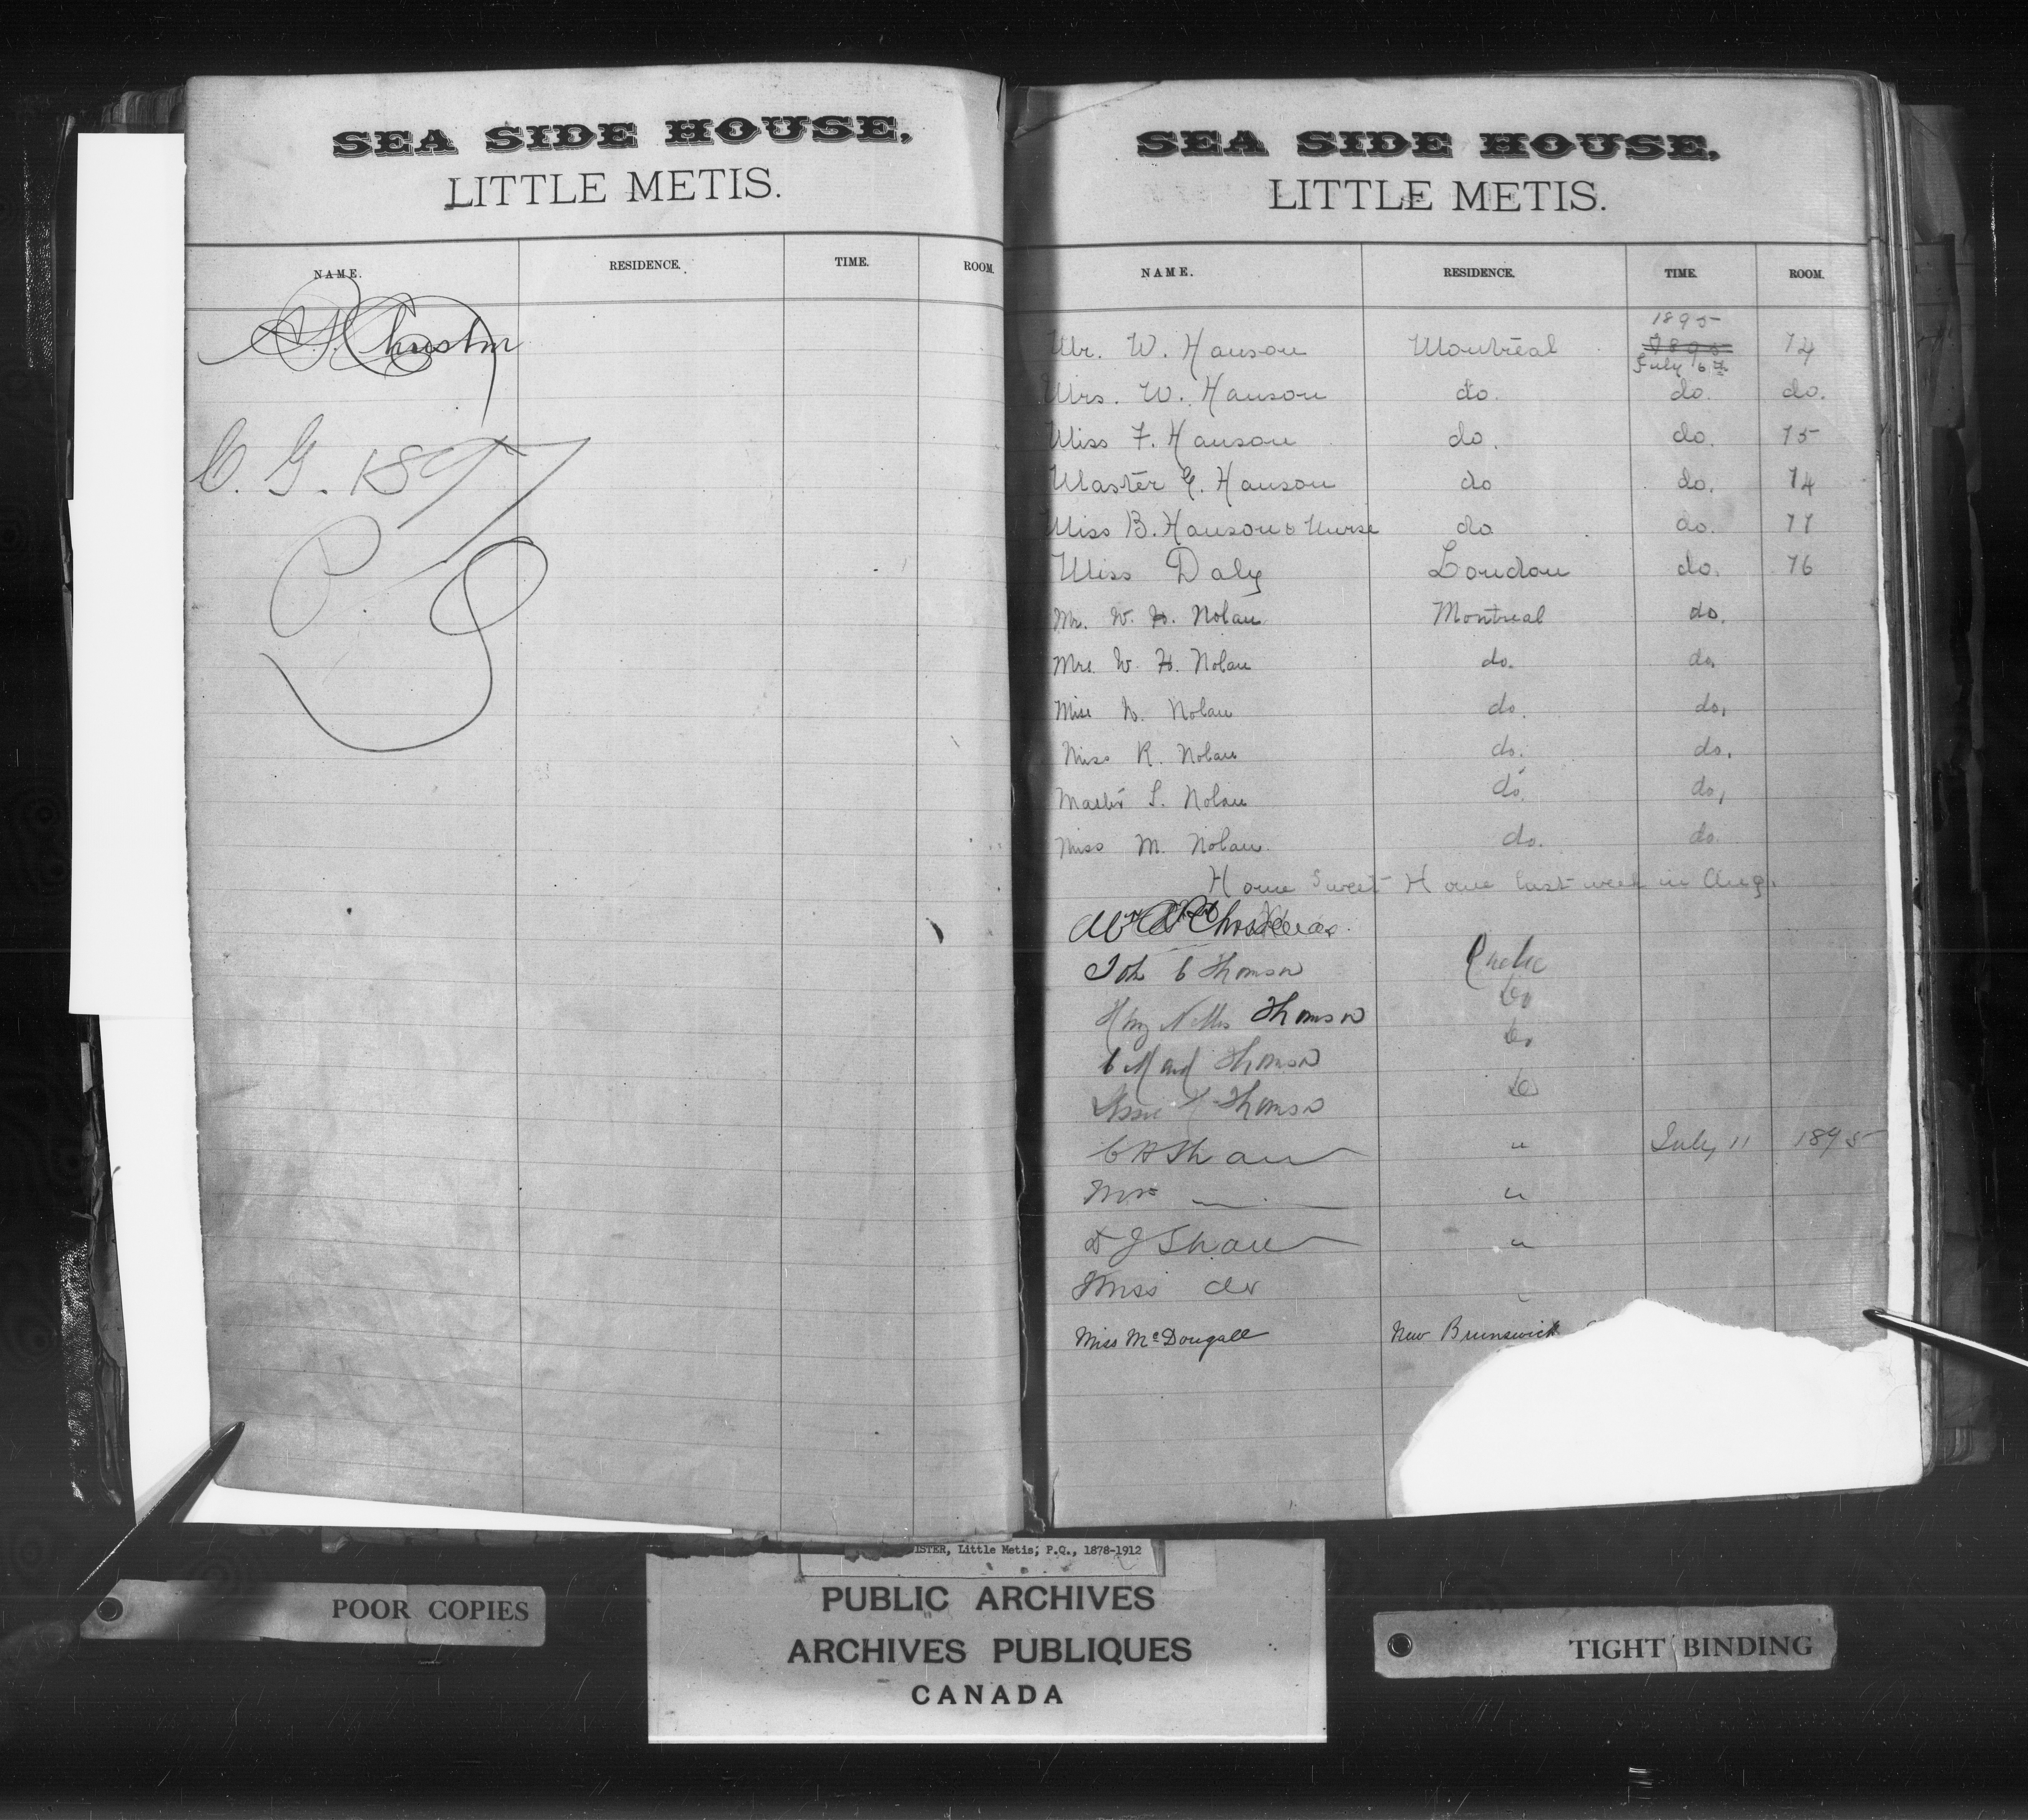 SEA SIDE HOUSE,
LITTLE METIS.
NAME. RESIDENCE. TIME. ROOM.
C. G. 1897
SEA SIDE HOUSE,
LITTLE METIS.
NAME. RESIDENCE. TIME. ROOM.
1895
Mr. W. Hanson Montreal 1895 74
July 6th
Mrs. W. Hanson do. do. do.
Miss F. Hanson do. do. 75
Master G. Hanson do do. 74
Miss B. Hanson & Nurse do do. 77
Miss Daly London do. 76
Mr. W. H. Nolan Montreal do.
Mrs W. H. Nolan do. do.
Miss N. Nolan do. do.
Miss R. Nolan do. do.
Master S. Nolan do. do,
Miss M. Nolan. do. do.
Home Sweet Home last week in Aug.
Joh C Thomson Quebec
Thomson Do
C Maud Thomson Do
Thomson Do
C H Shaw " July 11 1895
Mrs — "
D J Shaw "
Miss do "
Miss McDougall New Brunswick
ISTER, Little Metis; P.Q., 1878-1912
PUBLIC ARCHIVES
ARCHIVES PUBLIQUES
CANADA
POOR COPIES
TIGHT BINDING